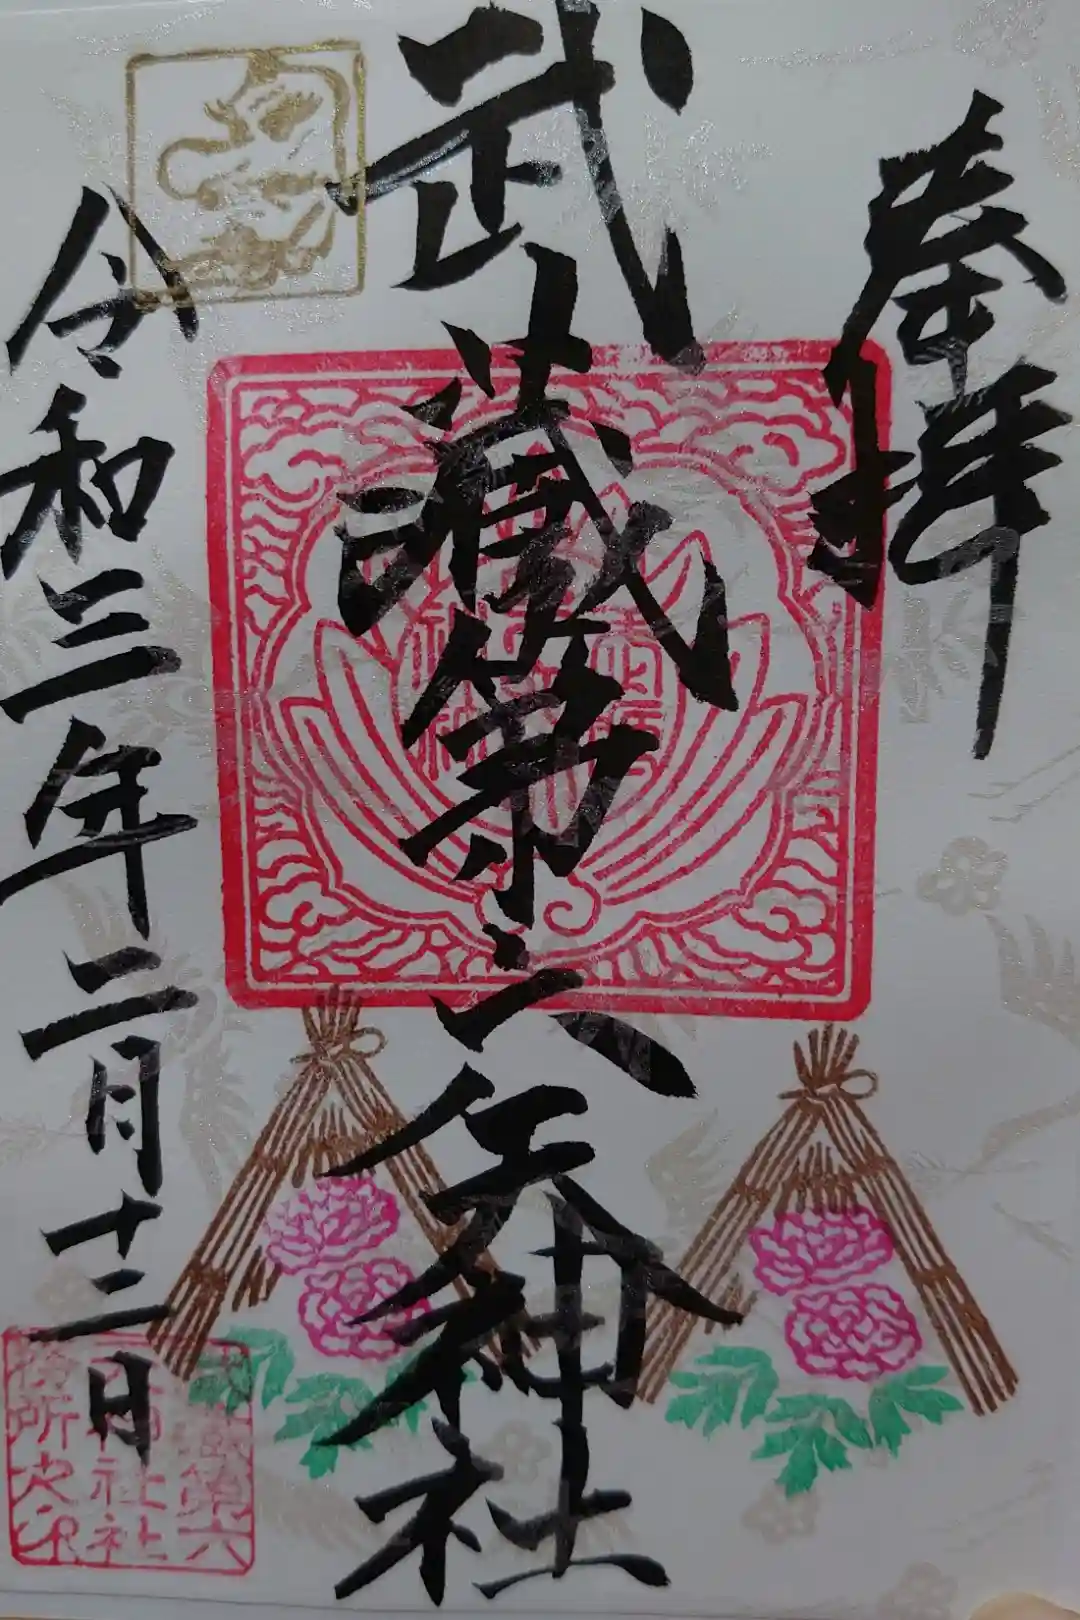 奉拝
武蔵第六天神社
令和三年二月十二日